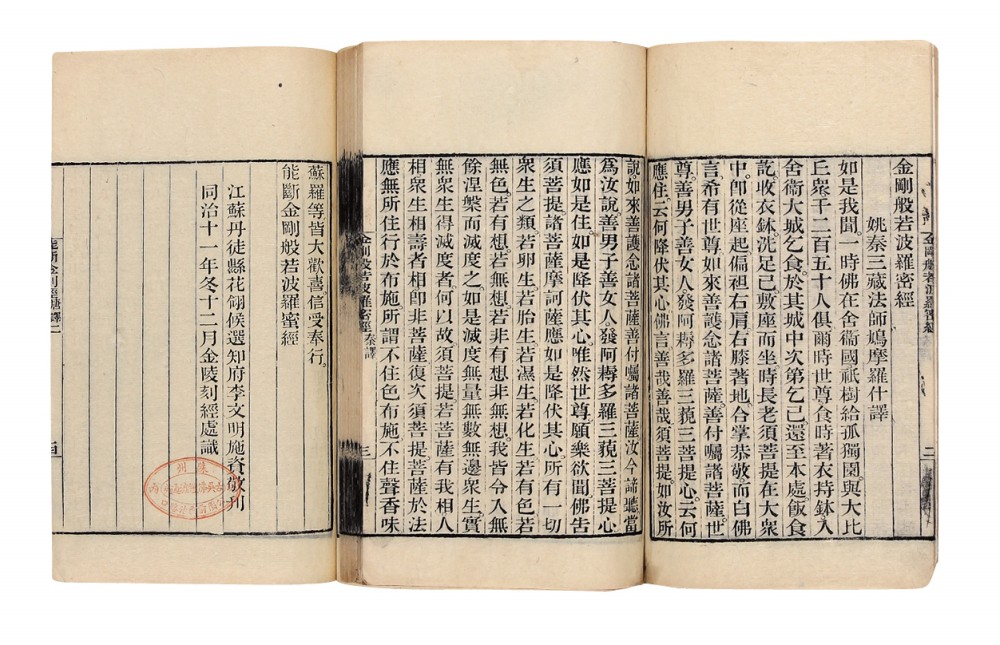 金剛般若波羅密經
二
金剛般若波羅密經
姚秦三藏法師鳩摩羅什譯
如是我聞。一時佛在舍衞國祇樹給孤獨園與大比
丘衆千二百五十人俱爾時世尊食時著衣持鉢入
舍衞大城乞食於其城中次第乞已還至本處飯食
訖收衣鉢洗足已敷座而坐時長老須菩提在大衆
中。卽從座起偏袒右肩右膝著地合掌恭敬而白佛
言希有世尊如來善護念諸菩薩善付囑諸菩薩世
尊善男子善女人發阿耨多羅三藐三菩提心。云何
應住。云何降伏其心佛言善哉善哉須菩提如汝所
說如來善護念諸菩薩善付囑諸菩薩汝今諦聽當
爲汝說善男子善女人。發阿耨多羅三藐三菩提心
應如是住如是降伏其心。唯然世尊願樂欲聞佛告
須菩提諸菩薩摩訶薩應如是降伏其心。所有一切
衆生之類若卵生若胎生若濕生若化生若有色若
無色若有想若無想若非有想非無想我皆令入無
餘涅槃而滅度之如是滅度無量無數無邊衆生實
無衆生得滅度者何以故須菩提若菩薩有我相人
相衆生相壽者相卽非菩薩復次須菩提菩薩於法
應無所住行於布施所謂不住色布施不住聲香味
金剛般若波羅密經秦譯
三
蘇羅等皆大歡喜信受奉行。
能斷金剛般若波羅蜜經
江蘇丹徒縣花翎候選知府李文明施資敬刊
同治十一年冬十二月金陵刻經處識